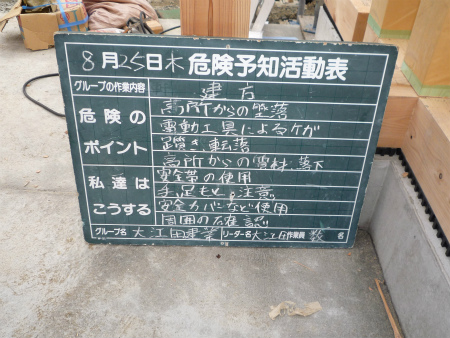 8月25日木 危険予知活動表
グループの作業内容 建方
危険のポイント 高所からの墜落
電動工具によるケガ
躓き、転落
高所からの電材、落下
私達はこうする 安全帯の使用
手足もと、注意。
安全カバーなど使用
周囲の確認
グループ名 大江田建築 リーダー名 大江田 作業員 数名